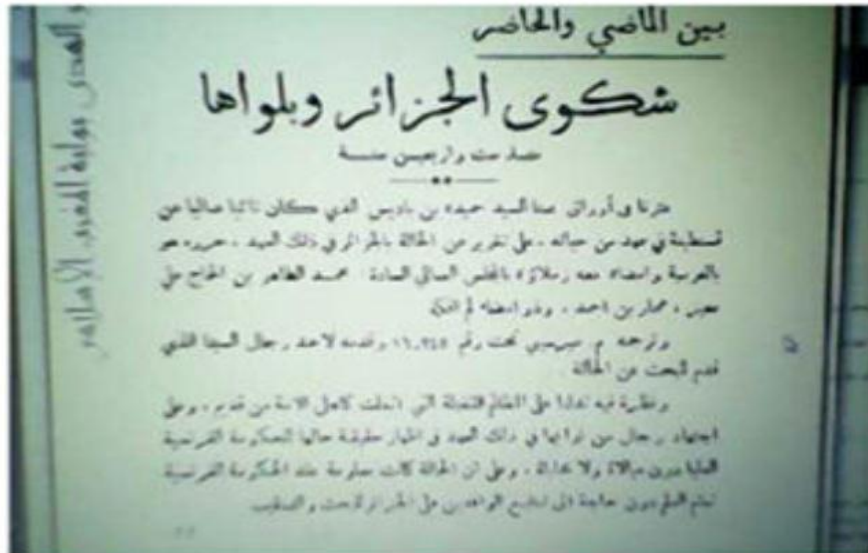 بين الماضي والحاضر
شكوى الجزائر وبلواها
منذ ست واربعين سنة
عثرنا في أوراق عمنا السيد حميده بن باديس الذي كان نائبا ماليا عن
قسنطينة في عهد من حياته ، على تقرير عن الحالة بالجزائر في ذلك العهد ، حرره هو
بالعربية وامضاه معه زملاؤه بالمجلس المالي السادة : محمد الطاهر بن الحاج علي
، عمار بن احمد ، وذو امضاء لم
وترجمه م تحت رقم ١٦.٢٤٥ وقدمه لاحد رجال السينا الذي
قدم للبحث عن الحالة
ونظرة فيه تدلنا على المظالم الثقيلة التي اثقلت كاهل الامة من قديم ، وعلى
اجتهاد رجال من نوابها في ذلك العهد في اظهار حقيقة حالها للحكومة الفرنسية
العليا بدون مبالاة ولا محاباة ، وعلى ان الحالة كانت معلومة عند الحكومة الفرنسية
تمام العلم بدون حاجة الى الوافدين على الجزائر للبحث والتنقيب
المغرب الإسلامي